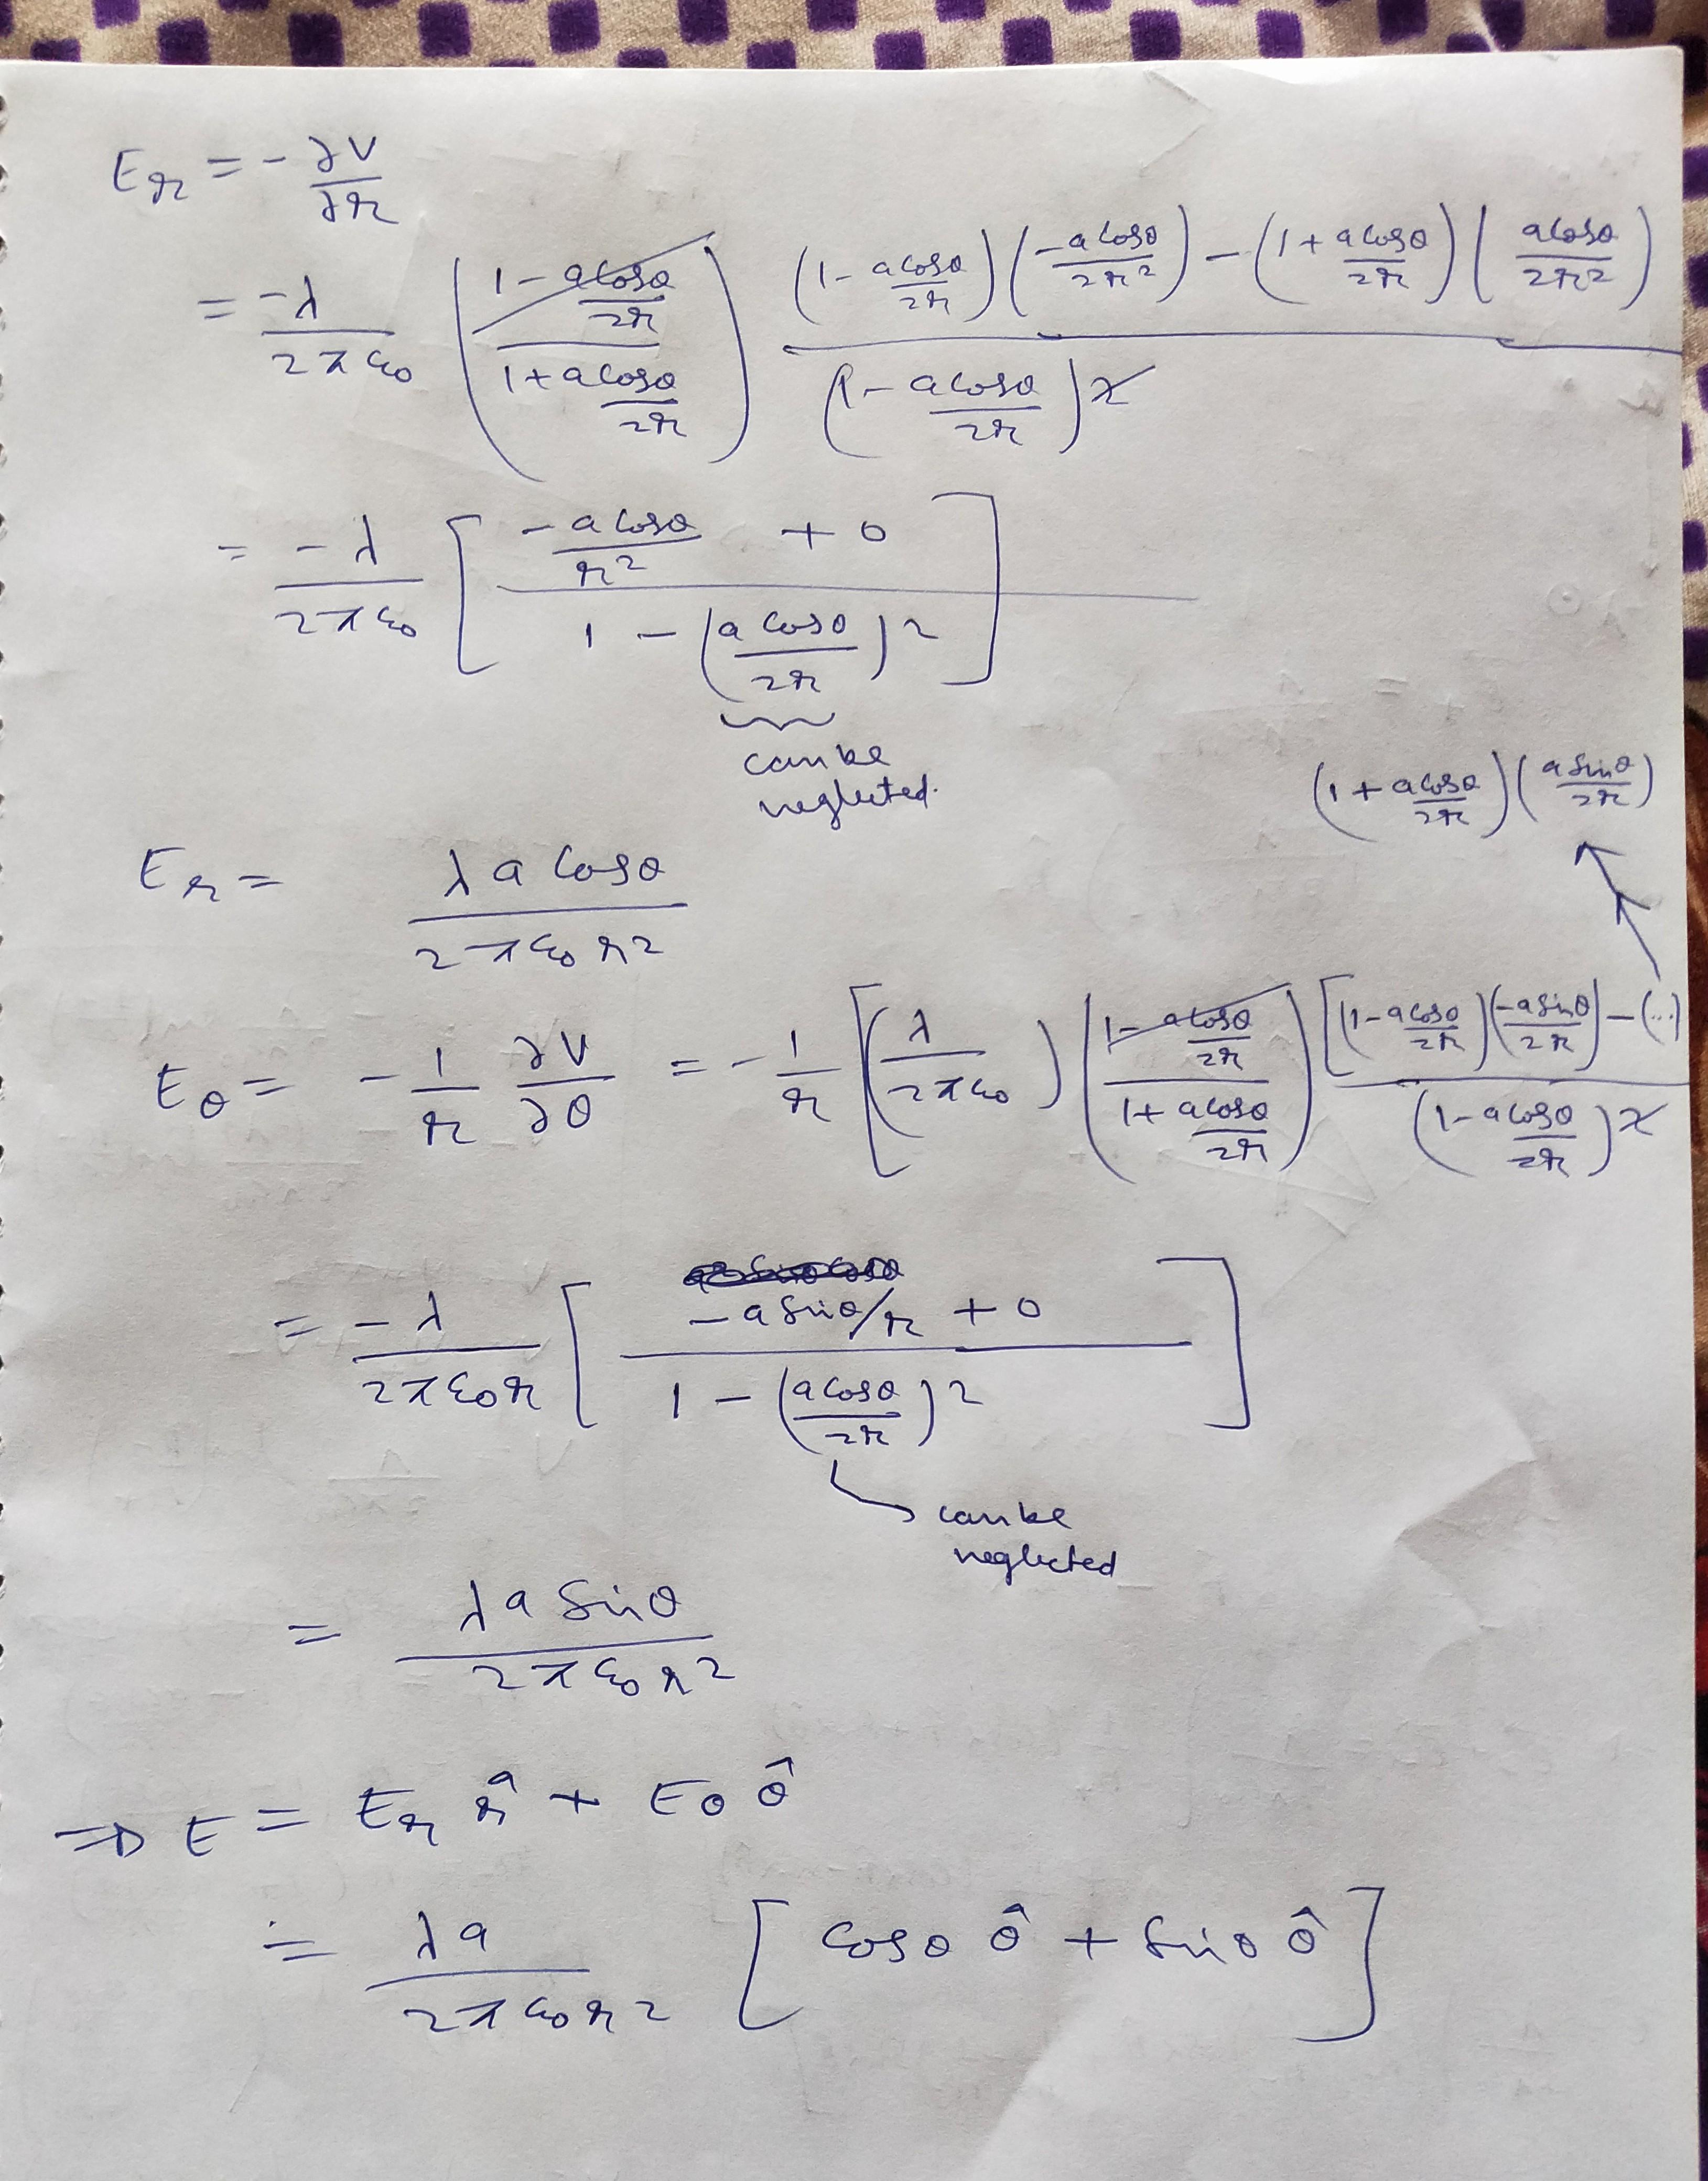 E_r = - ∂V/∂r
= -λ/2πε₀ ((1 - acosθ/2r)/(1 + acosθ/2r)) ((1 - acosθ/2r)(-acosθ/2r²) - (1 + acosθ/2r)(acosθ/2r²))/(1 - acosθ/2r)²
= -λ/2πε₀ [(-acosθ/r² + 0)/(1 - (acosθ/2r)²)]
can be
neglected.
(1 + acosθ/2r)(asinθ/2r)
E_r = λ a cosθ/2πε₀r²
E_θ = - 1/r ∂V/∂θ = - 1/r [(λ/2πε₀) ((1 - acosθ/2r)/(1 + acosθ/2r)) [(1 - acosθ/2r)(-asinθ/2r) - (...)/(1 - acosθ/2r)²
= -λ/2πε₀r [(-a sinθ/r + 0)/(1 - (acosθ/2r)²)]
can be
neglected
= λ a sinθ/2πε₀r²
⇒ E = E_r r̂ + E_θ θ̂
= λa/2πε₀r² [cosθ θ̂ + sinθ θ̂]